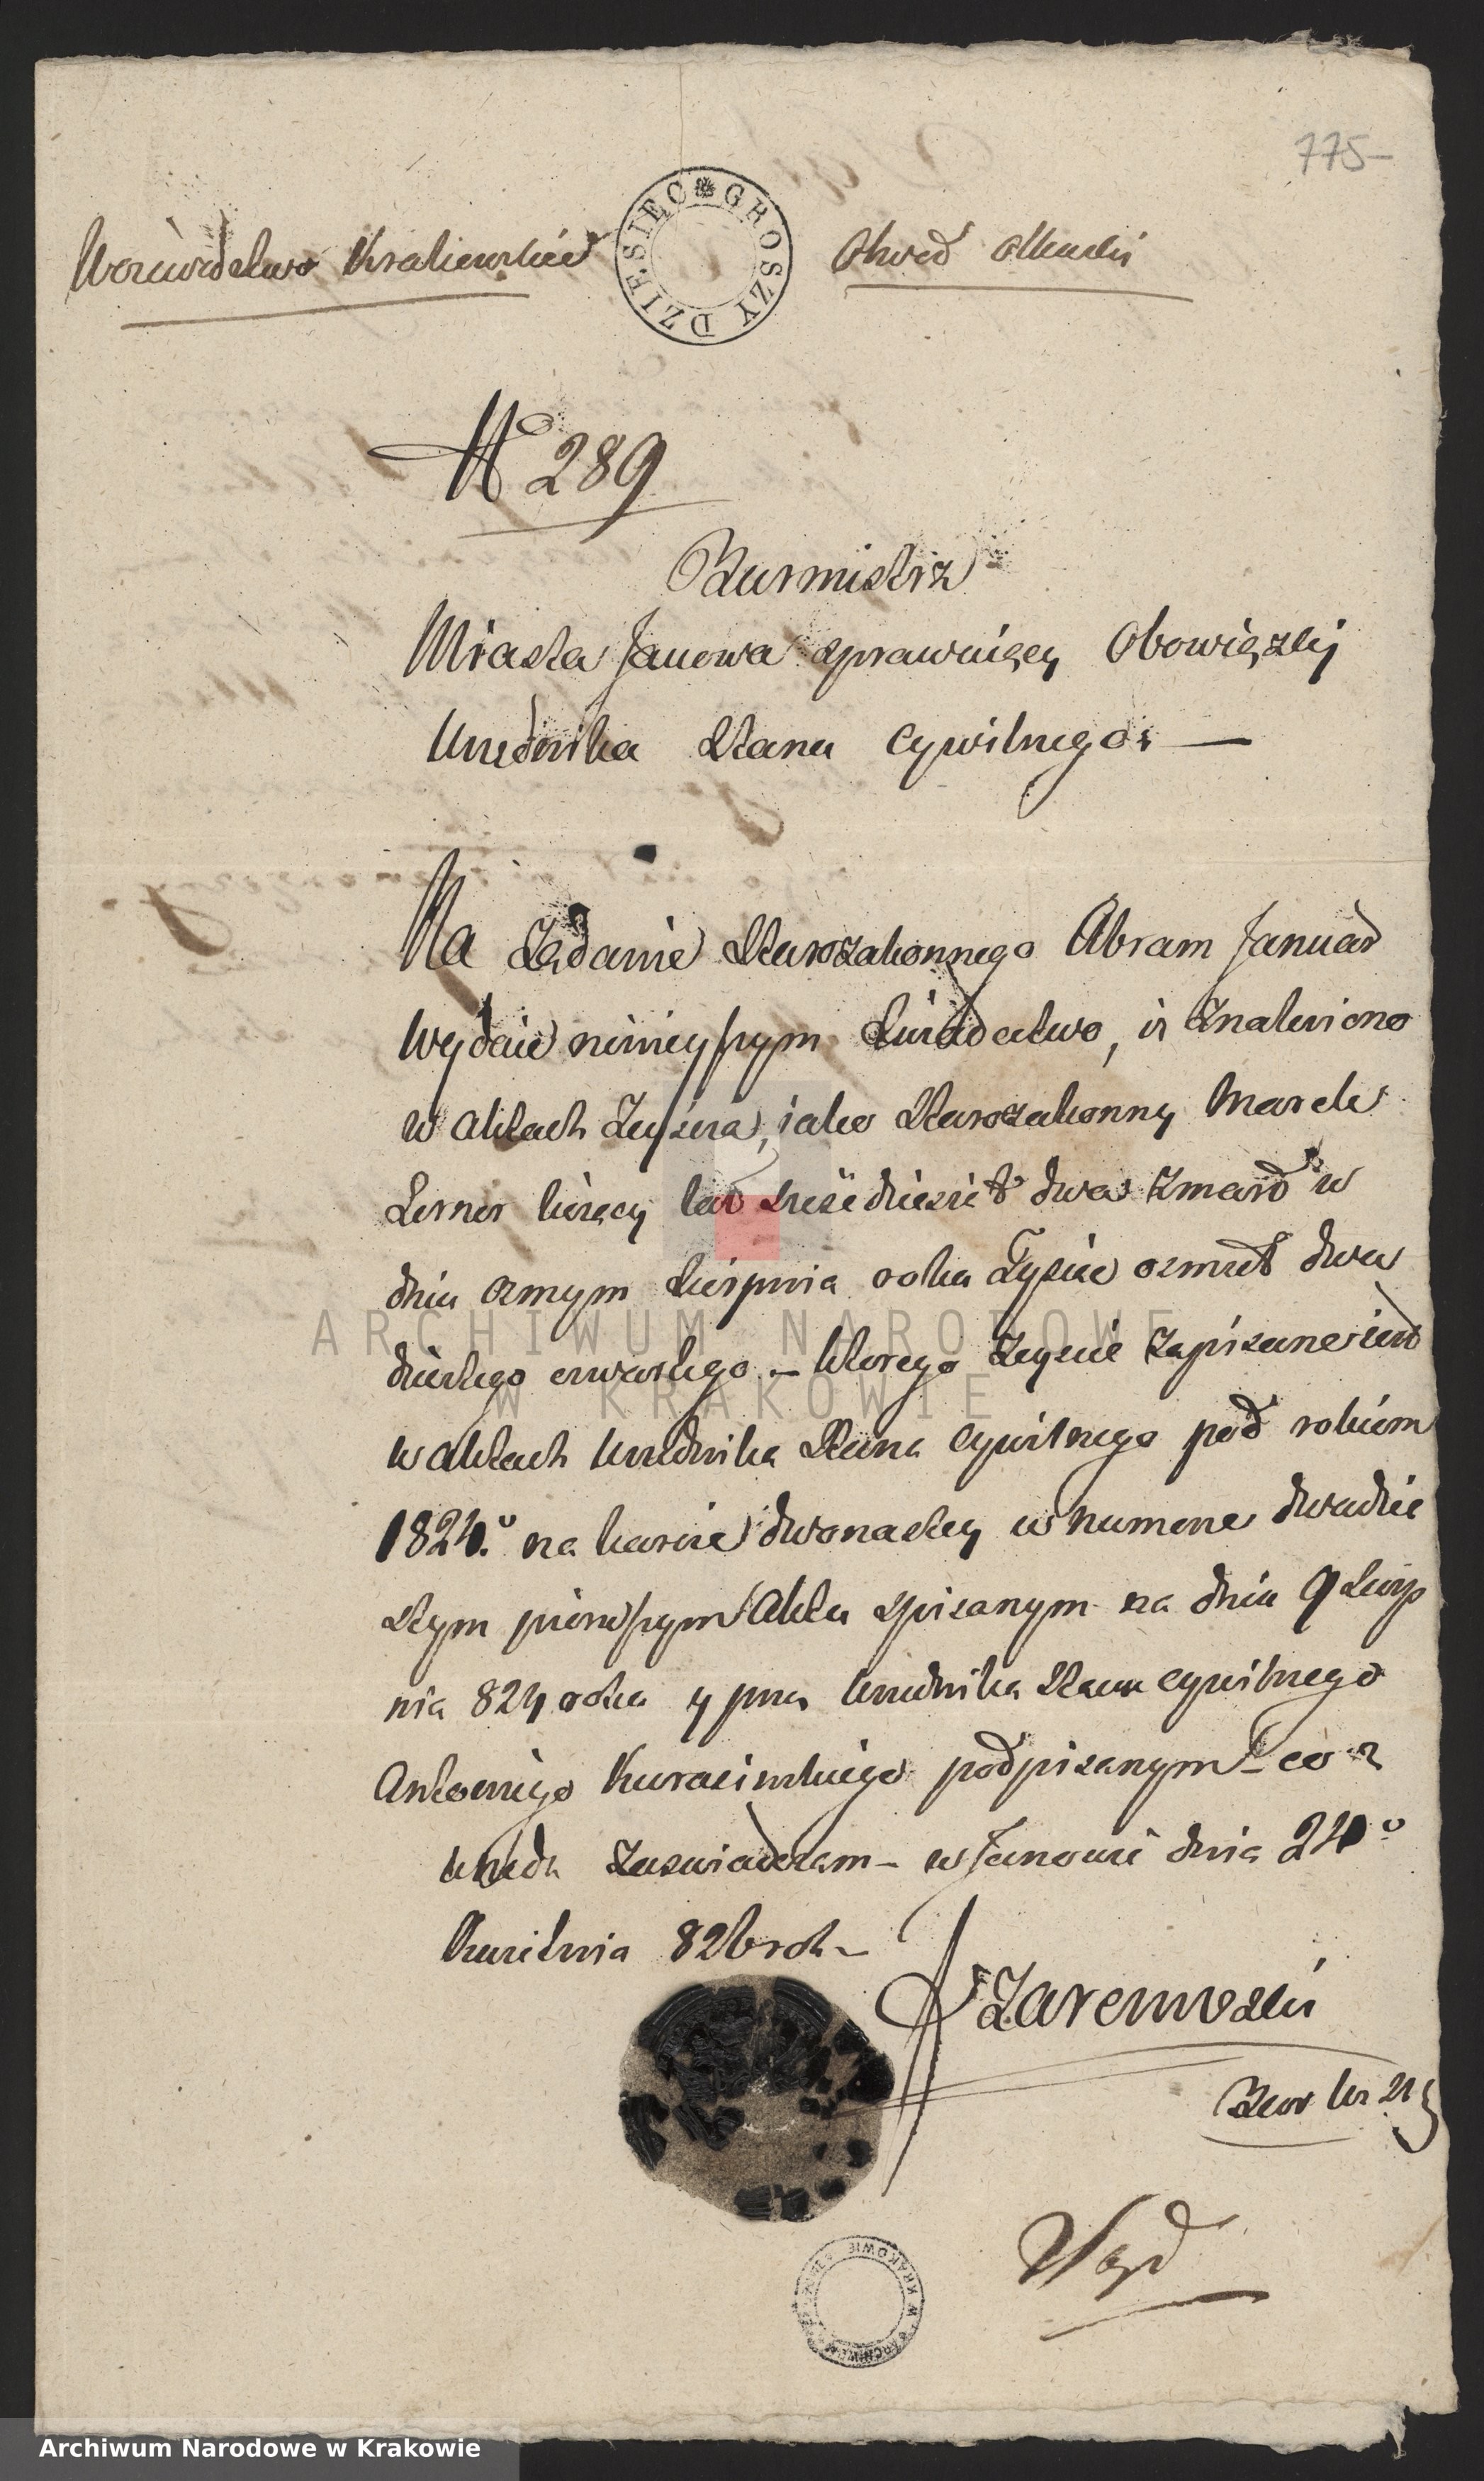 775-
Woiewodztwo Krakowskie
DZIESIĘC GROSZY
Obwod Olkuski
N 289
Burmistrz
Miasta Janowa sprawuiący Obowiązki
Urzędnika Stanu Cywilnego
Na Żądanie Starozakonnego Abram Januar
Wydaie ninieyszym Swiadectwo, iż Znaleziono
w Aktach Zeyścia, iako Starozakonny Marek
Lerner liczący lat sześćdziesiąt dwa Zmarł w
dniu osmym Sierpnia roku Tysiąc osmset dwu
dziestego czwartego – którego Zeyście Zapisane iest
w Aktach Urzędnika Stanu Cywilnego pod rokiem
1824.o na karcie dwonastey w Numerze dwudzie
stym pierwszym Aktu spisanym na dniu 9 Sierp
nia 824 roku y przez Urzędnika Stanu Cywilnego
Antoniego podpisanym – co z
urzędu Zaswiadczam – w Janowie dnia 24o
Kwietnia 826 rok –
Zaremski
ARCHIWUM NARODOWE
W KRAKOWIE
Archiwum Narodowe w Krakowie